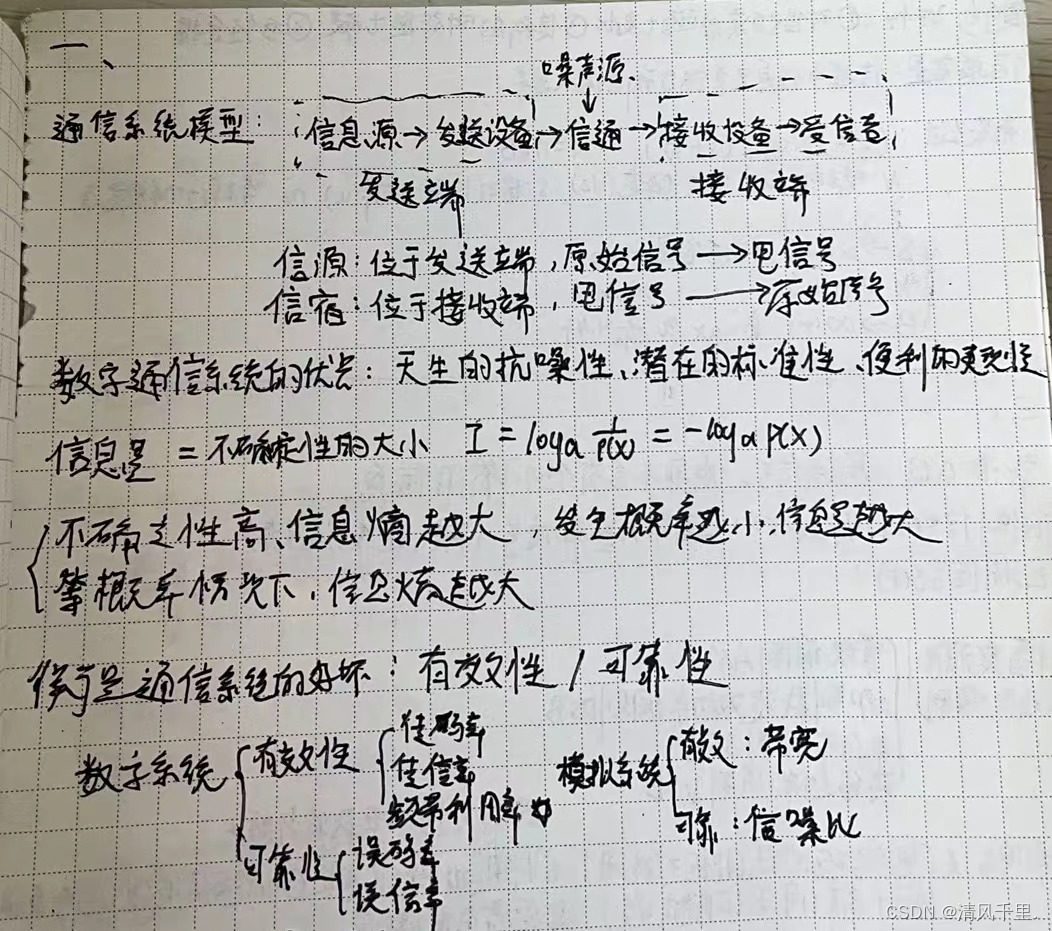 一、
噪声源
通信系统模型: 信息源→发送设备→信道→接收设备→受信者
发送端 接收端
信源:位于发送端,原始信号→电信号
信宿:位于接收端,电信号→原始信号
数字通信系统的优点:天生的抗噪性、潜在的标准性、便利的实现性
信息量 = 不确定性的大小 I = loga 1/P(x) = -loga P(x)
不确定性高、信息熵越大,发生概率越小,信息量越大
等概率情况下,信息熵越大
衡量通信系统的好坏:有效性/可靠性
传码率
数字系统 有效性 传信率 模拟系统 有效:带宽
频带利用率
可靠:信噪比
可靠性 误码率
误信率
CSDN @清风千里